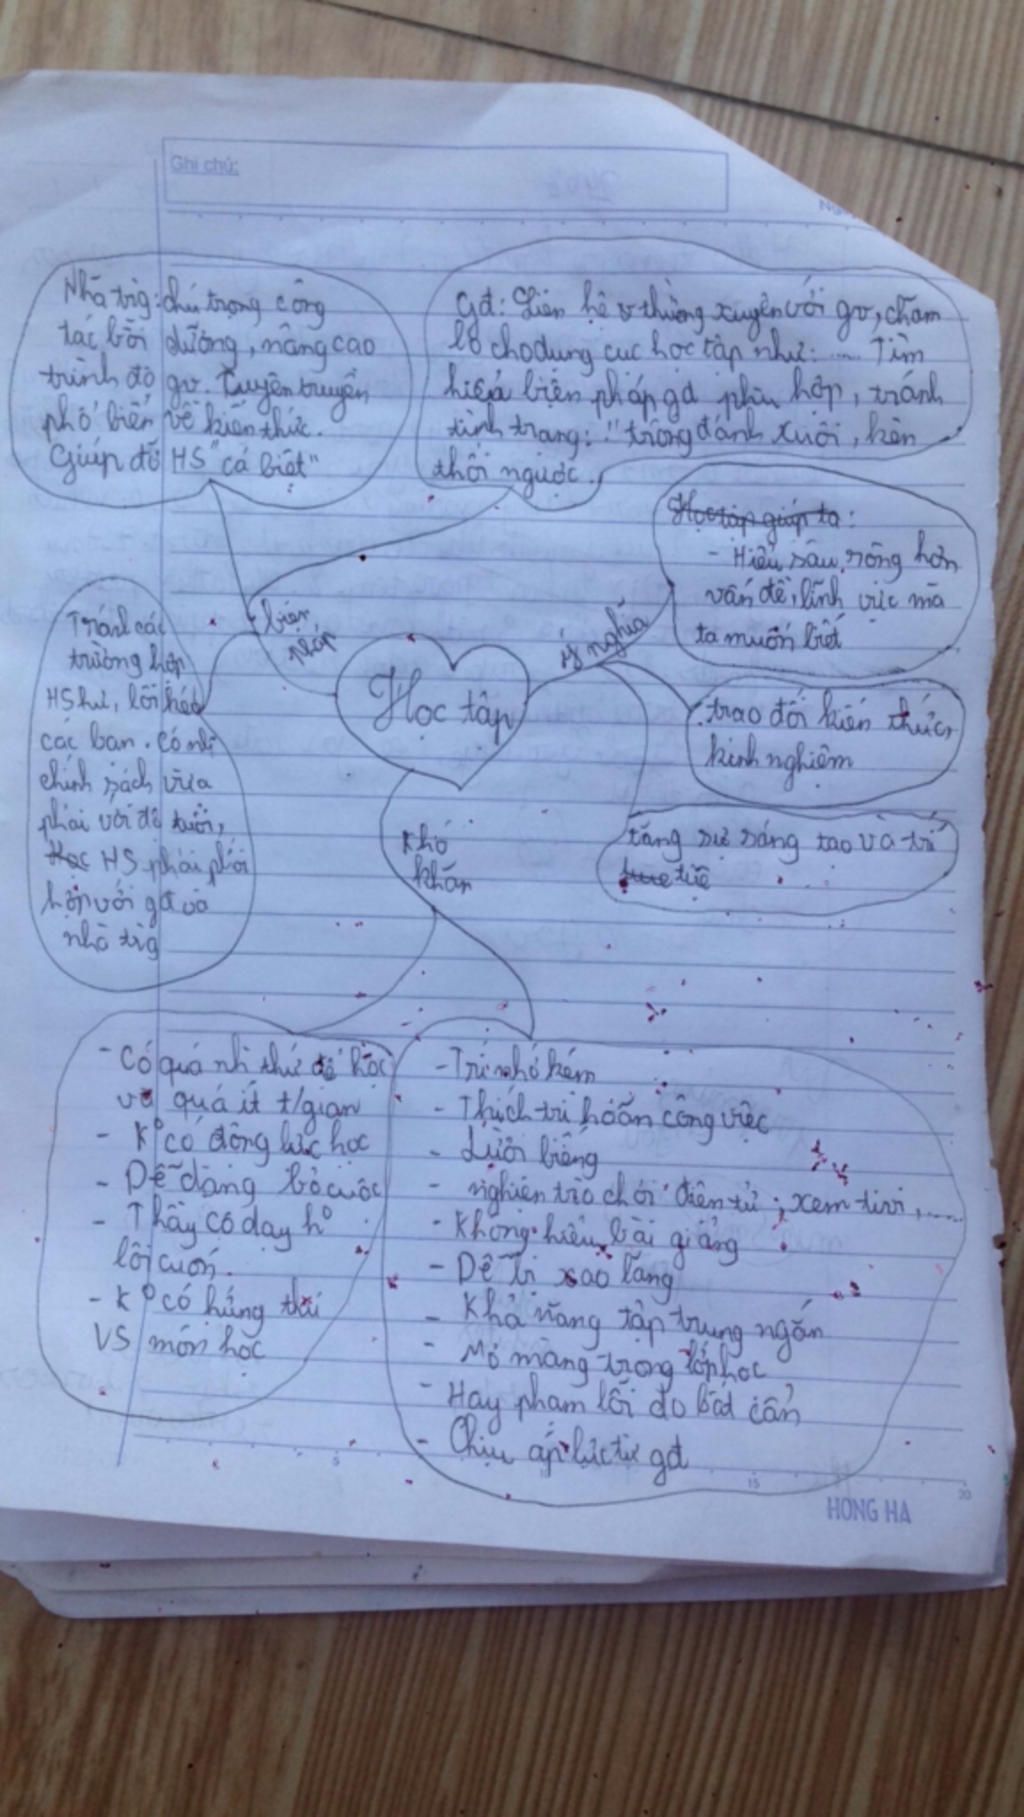 Ghi chú:
Nhà trg: chú trọng công
tác bồi dưỡng, nâng cao
trình độ gv. Tuyên truyền
phổ biến về kiến thức.
Giúp đỡ HS "cá biệt"
Gđ: Liên hệ thường xuyên với gv, chăm
lo cho dụng cục học tập như: .... Tìm
hiểu biện pháp gd phù hợp, tránh
tình trạng: "trống đánh xuôi, kèn
thổi ngược.
Học tập giúp ta:
- Hiểu sâu, rộng hơn
vấn đề, lĩnh vực mà
ta muốn biết
biện
pháp
ý nghĩa
Học tập
Tránh các
trường hợp
HS hư, lôi kéo
các bạn. Có nh
chính sách vừa
phải với độ tuổi,
Học HS phải phối
hợp với gđ và
nhà trg
trao đổi kiến thức,
kinh nghiệm
tăng sự sáng tạo và trí
tuệ
Khó
khăn
- Có quá nh thứ để học
và quá ít t/gian
- K° có động lực học
- Dễ dàng bỏ cuộc
- Thầy cô dạy k°
lôi cuốn.
- K° có hứng thú
VS môn học
- Trí nhớ kém
- Thích trì hoãn công việc
- Lười biếng
- nghiện trò chơi điện tử; xem tivi,....
- Không hiểu bài giảng
- Dễ bị xao lãng
- Khả năng tập trung ngắn
- Mơ màng trong lớp học
- Hay phạm lỗi do bất cẩn
- Chịu áp lực từ gđ
5
10
15
20
HONG HA